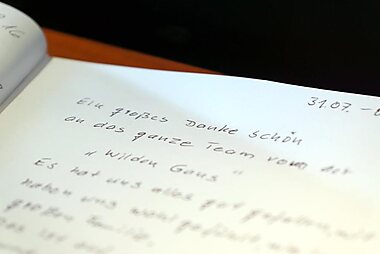 31.07. -
Ein großes Danke schön
an das ganze Team vom der
" Wilden Gans "
Es hat uns alles gut gefallen, wir
haben uns wohl gefühlt wie
großen Familie.